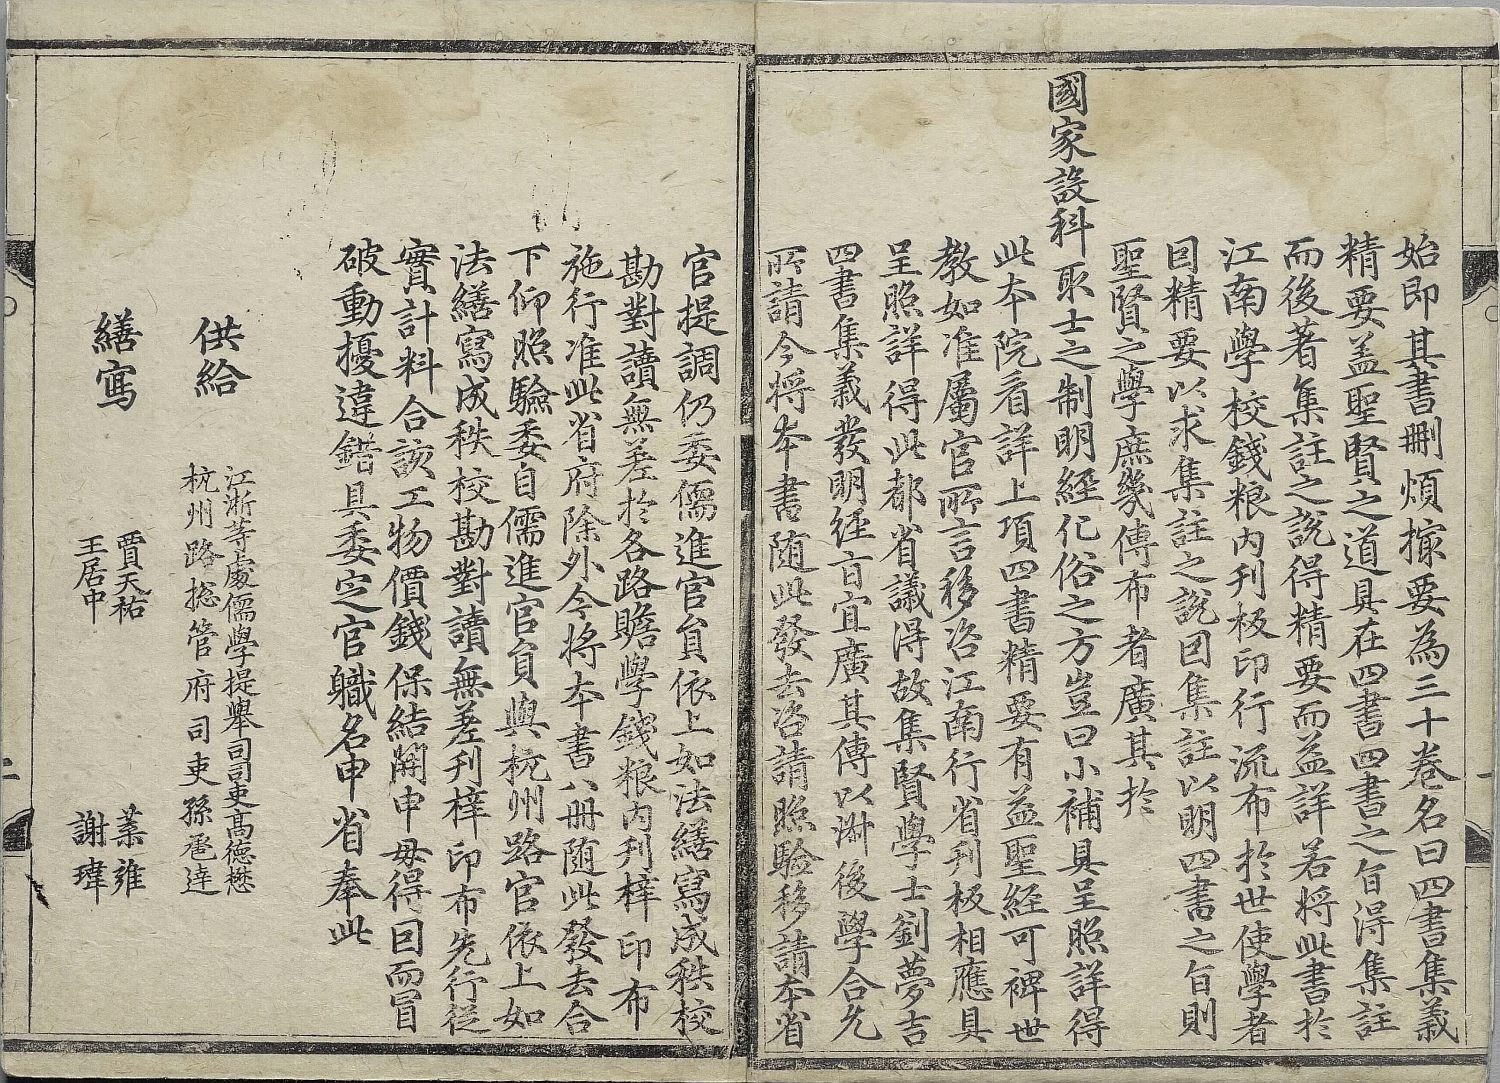 始即其書刪煩撮要為三十卷名曰四書集義
精要盖聖賢之道具在四書四書之旨得集註
而後著集註之說得精要而益詳若将此書於
江南學校錢粮内刋板印行流布於世使學者
因精要以求集註之說因集註以明四書之旨則
聖賢之學庶幾傳布者廣其於
國家設科取士之制明經化俗之方豈曰小補具呈照詳得
此本院看詳上項四書精要有益聖經可裨世
教如准屬官所言移咨江南行省刋板相應具
呈照詳得此都省議得故集賢學士劉夢吉
四書集義發明經旨宜廣其傳以淋後學合允
所請今将本書随此發去咨請照驗移請本省
官提調仍委儒進官員依上如法繕寫成秩校
勘對讀無差於各路贍學錢粮内刋梓印布
施行准此省府除外今將本書八冊随此發去合
下仰照驗委自儒進官員與杭州路官依上如
法繕寫成秩校勘對讀無差刋梓印布先行從
實計料合該工物價錢保結開申毋得因而冒
破動擾違錯具委定官軄名申省奉此
供給
江淅等處儒學提舉司司吏高德懋
杭州路捴管府司吏孫䨥達
繕寫
賈天祐
王居中
葉雍
謝瑋